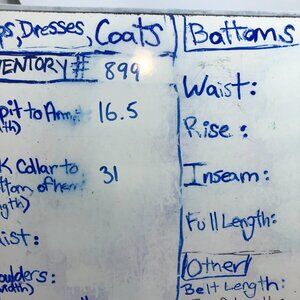 ps, Dresses, Coats
VENTORY # 899
pit to Arm: 16.5
dth)
K Collar to 31
ttom of hem:
gth)
ist:
oulders:
width)
Bottoms
Waist:
Rise:
Inseam:
Full Length:
Other
Belt Length: